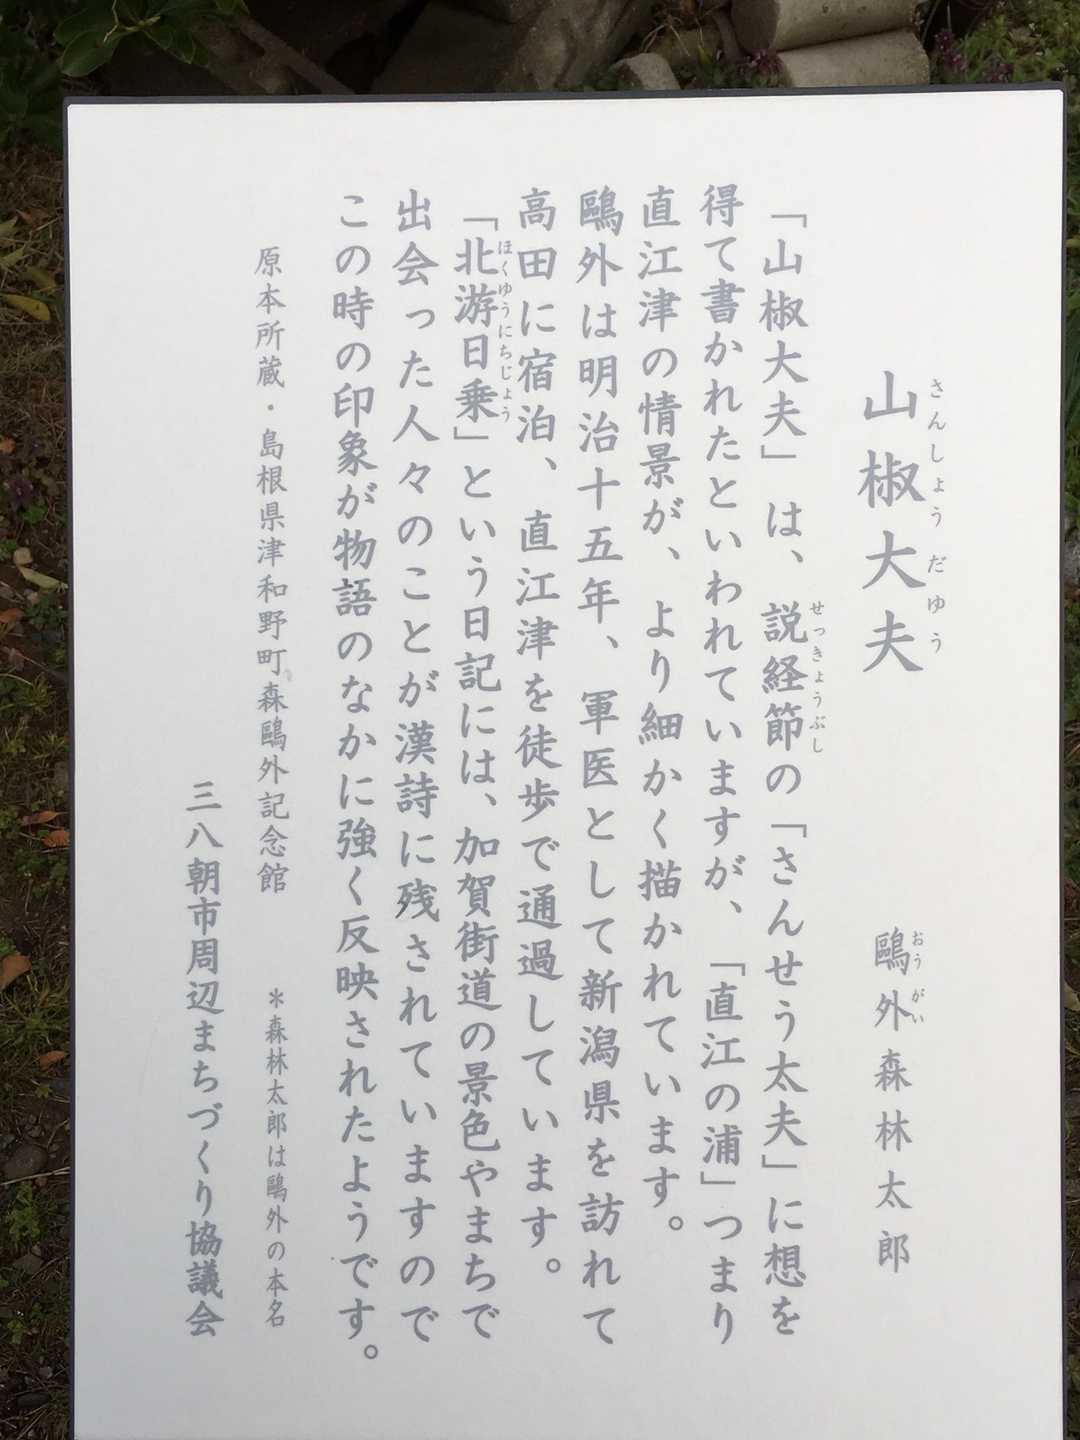 山椒大夫
さんしょうだゆう
鷗外森林太郎
おうがい
「山椒大夫」は、説経節の「さんせう太夫」に想を
せっきょうぶし
得て書かれたといわれていますが、「直江の浦」つまり
直江津の情景が、より細かく描かれています。
鷗外は明治十五年、軍医として新潟県を訪れて
高田に宿泊、直江津を徒歩で通過しています。
「北游日乗」という日記には、加賀街道の景色やまちで
ほくゆうにちじょう
出会った人々のことが漢詩に残されていますので
この時の印象が物語のなかに強く反映されたようです。
原本所蔵・島根県津和野町森鷗外記念館　＊森林太郎は鷗外の本名
三八朝市周辺まちづくり協議会